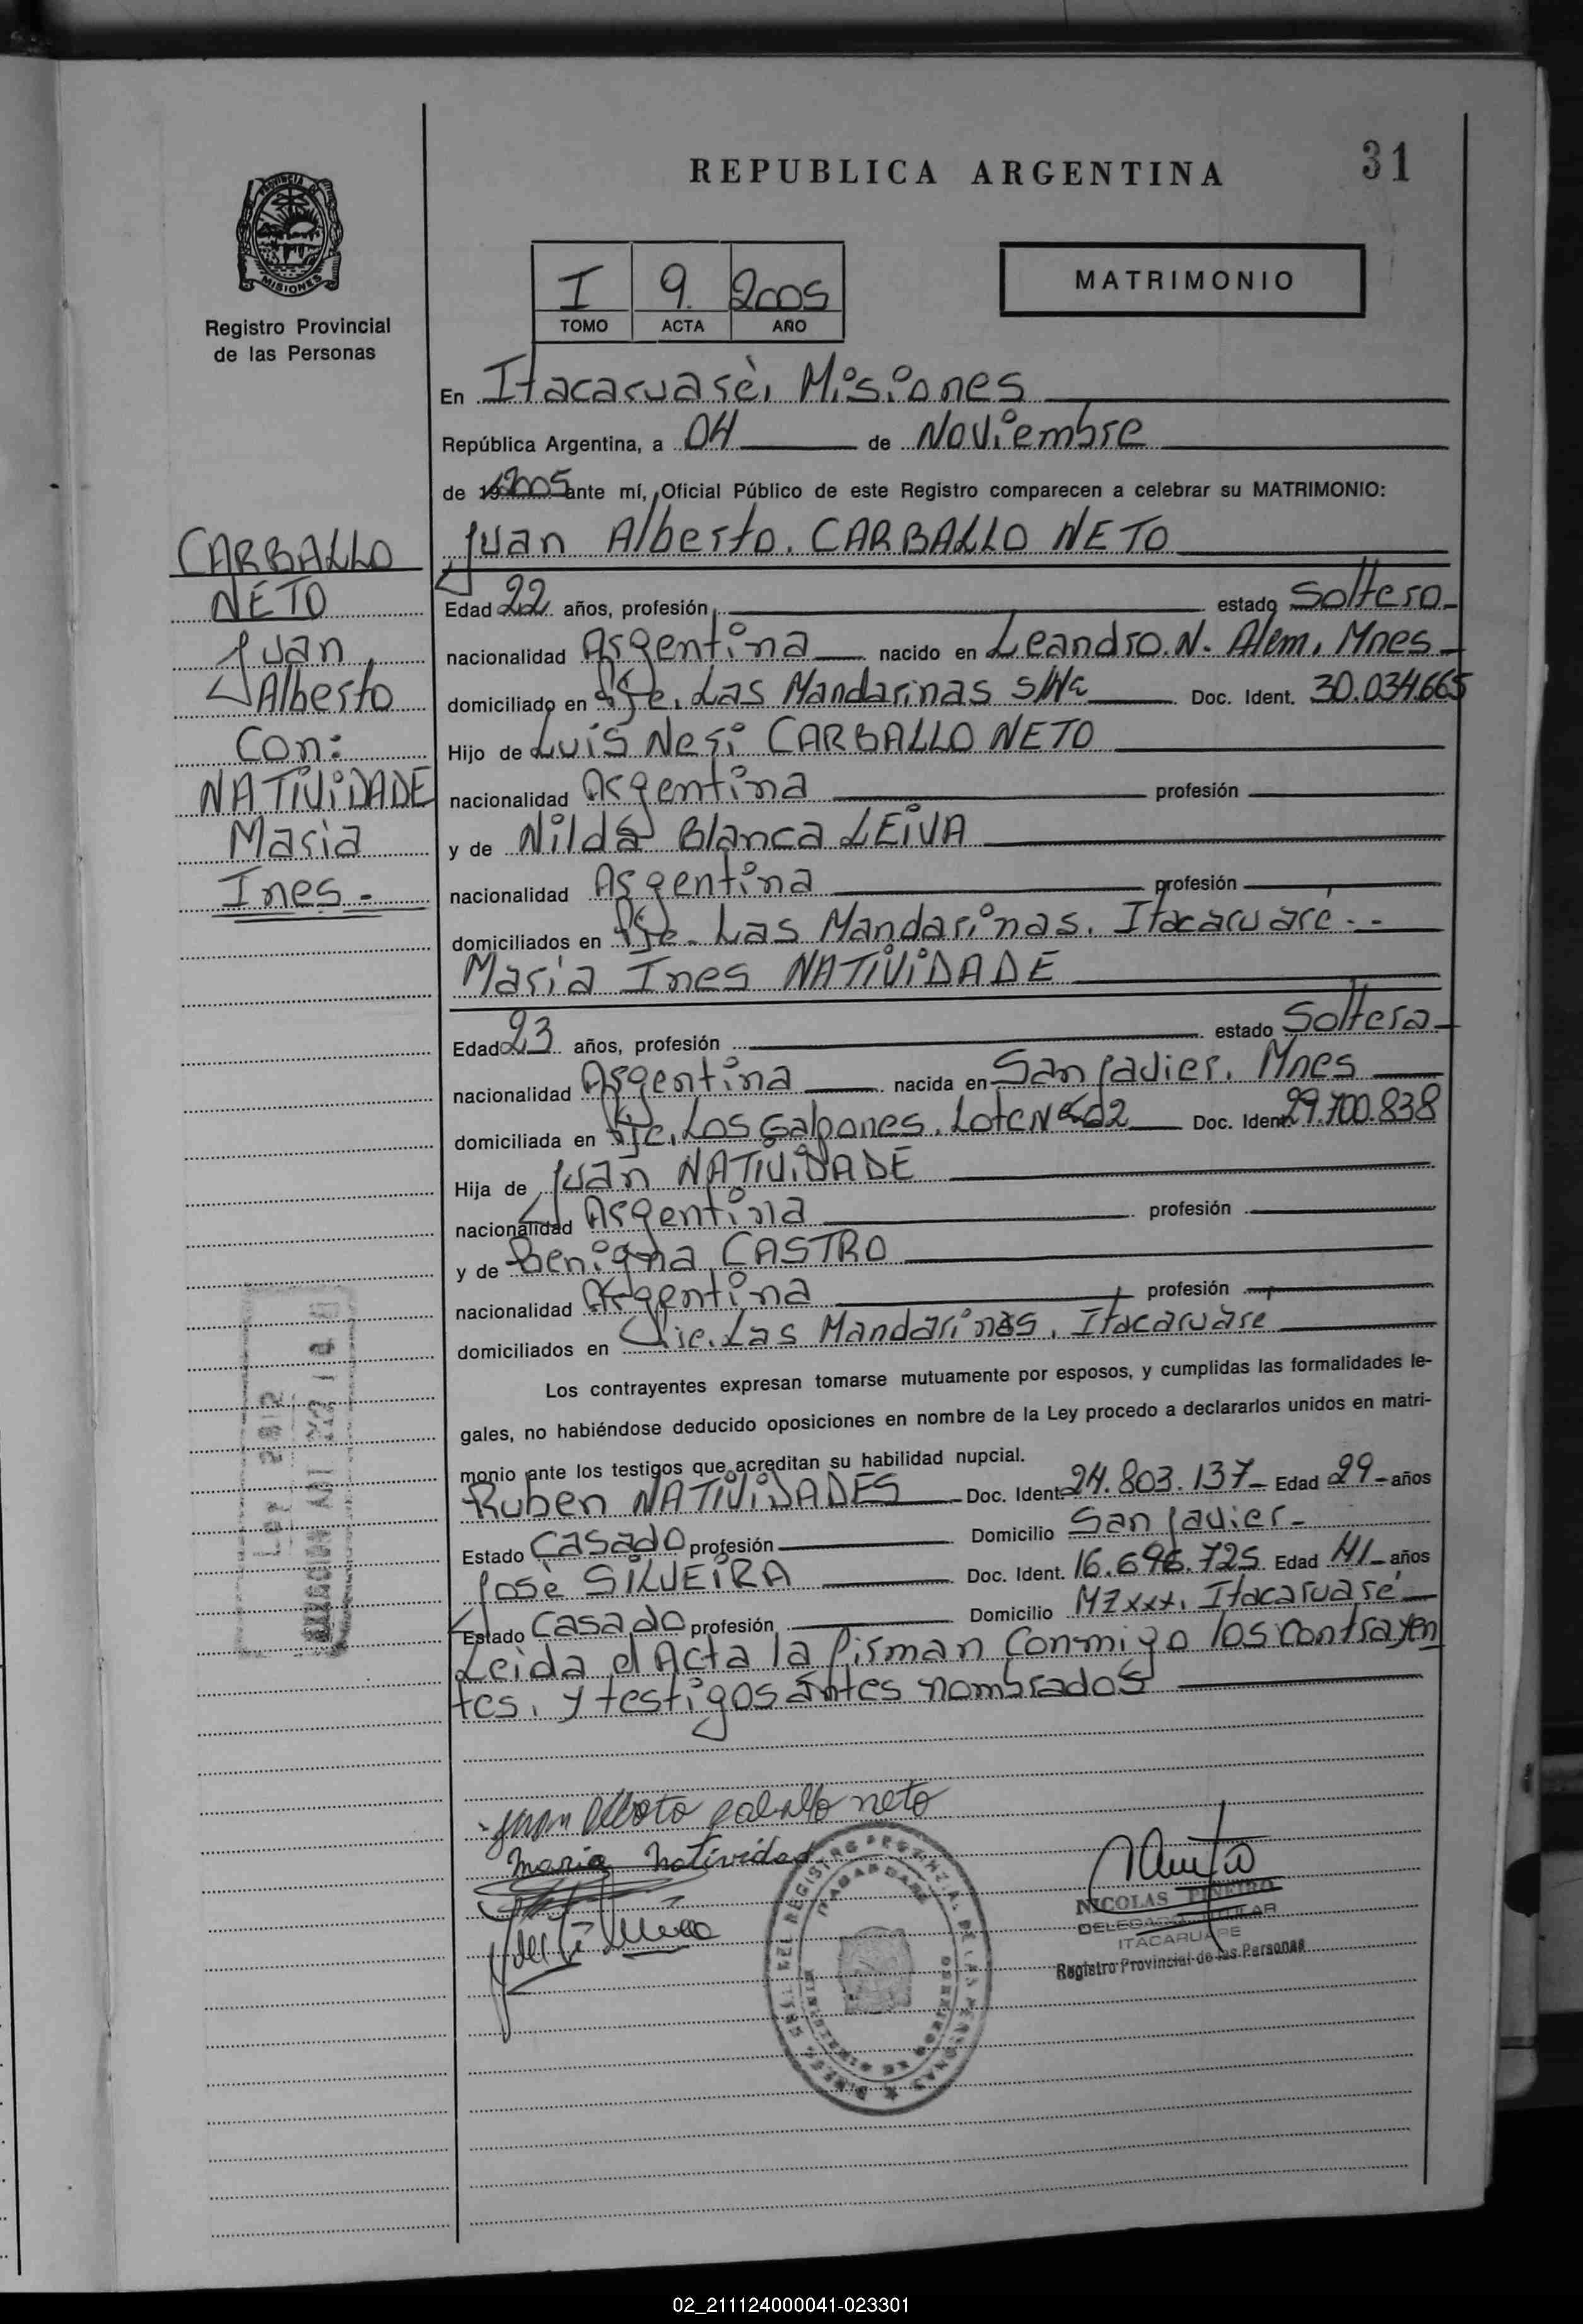 REPUBLICA ARGENTINA
31
PROVINCIA DE
MISIONES
Registro Provincial
de las Personas
I 9. 2005
TOMO ACTA AÑO
MATRIMONIO
En Itacaruarè, Misiones
República Argentina, a 04 de Noviembre
de 19 2005 ante mí, Oficial Público de este Registro comparecen a celebrar su MATRIMONIO:
Juan Alberto. CARBALLO NETO
Edad 22 años, profesión estado Soltero
nacionalidad Argentina nacido en Leandro. N. Alem, Mnes
domiciliado en Pje. Las Mandarinas Doc. Ident. 30.034.665
Hijo de Luis Neri CARBALLO NETO
nacionalidad Argentina profesión
y de Nilda Blanca LEIVA
nacionalidad Argentina profesión
domiciliados en Pje. Las Mandarinas, Itacaruaré
Maria Ines NATIVIDADE
Edad 23 años, profesión estado Soltera
nacionalidad Argentina nacida en San Javier, Mnes
domiciliada en Pje. Los Galpones. Lote Doc. Ident. 29.700.838
Hija de Juan NATIVIDADE
nacionalidad Argentina profesión
y de Benigna CASTRO
nacionalidad Argentina profesión
domiciliados en Pje. Las Mandarinas, Itacaruare
Los contrayentes expresan tomarse mutuamente por esposos, y cumplidas las formalidades le-
gales, no habiéndose deducido oposiciones en nombre de la Ley procedo a declararlos unidos en matri-
monio ante los testigos que acreditan su habilidad nupcial.
Ruben NATIVIDADES Doc. Ident. 24.803.137 Edad 29 años
Estado Casado profesión Domicilio San Javier
Josè SILVEIRA Doc. Ident. 16.696.725 Edad 41 años
Estado Casado profesión Domicilio MZxxx, Itacaruaré
Leida el Acta la firman conmigo los contrayen
tes, y testigos antes nombrados
CARBALLO
NETO
Juan
Alberto
Con:
NATIVIDADE
Maria
Ines
Juan Alberto carballo neto
maria natividad
NICOLAS PIÑEIRO
DELEGADO TITULAR
ITACARUARE
Registro Provincial de las Personas
02_211124000041-023301